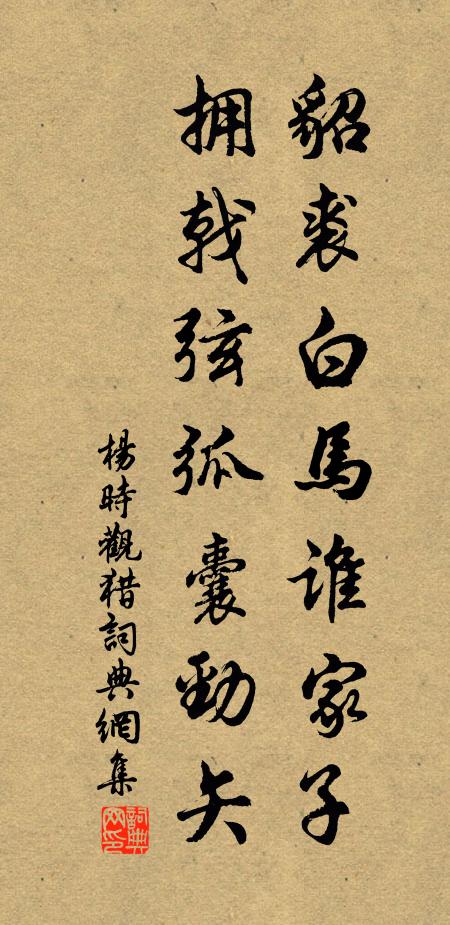 貂裘白馬誰家子
拥戟弦弧囊勁矢
楊時觀猎詞典網集
詞典网印